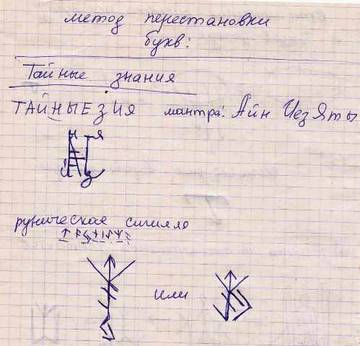 метод перестановки
букв:
Тайные знания
ТАЙНЫЕЗИЯ мантра: Айн Иез Яты
руническая сигилла
или